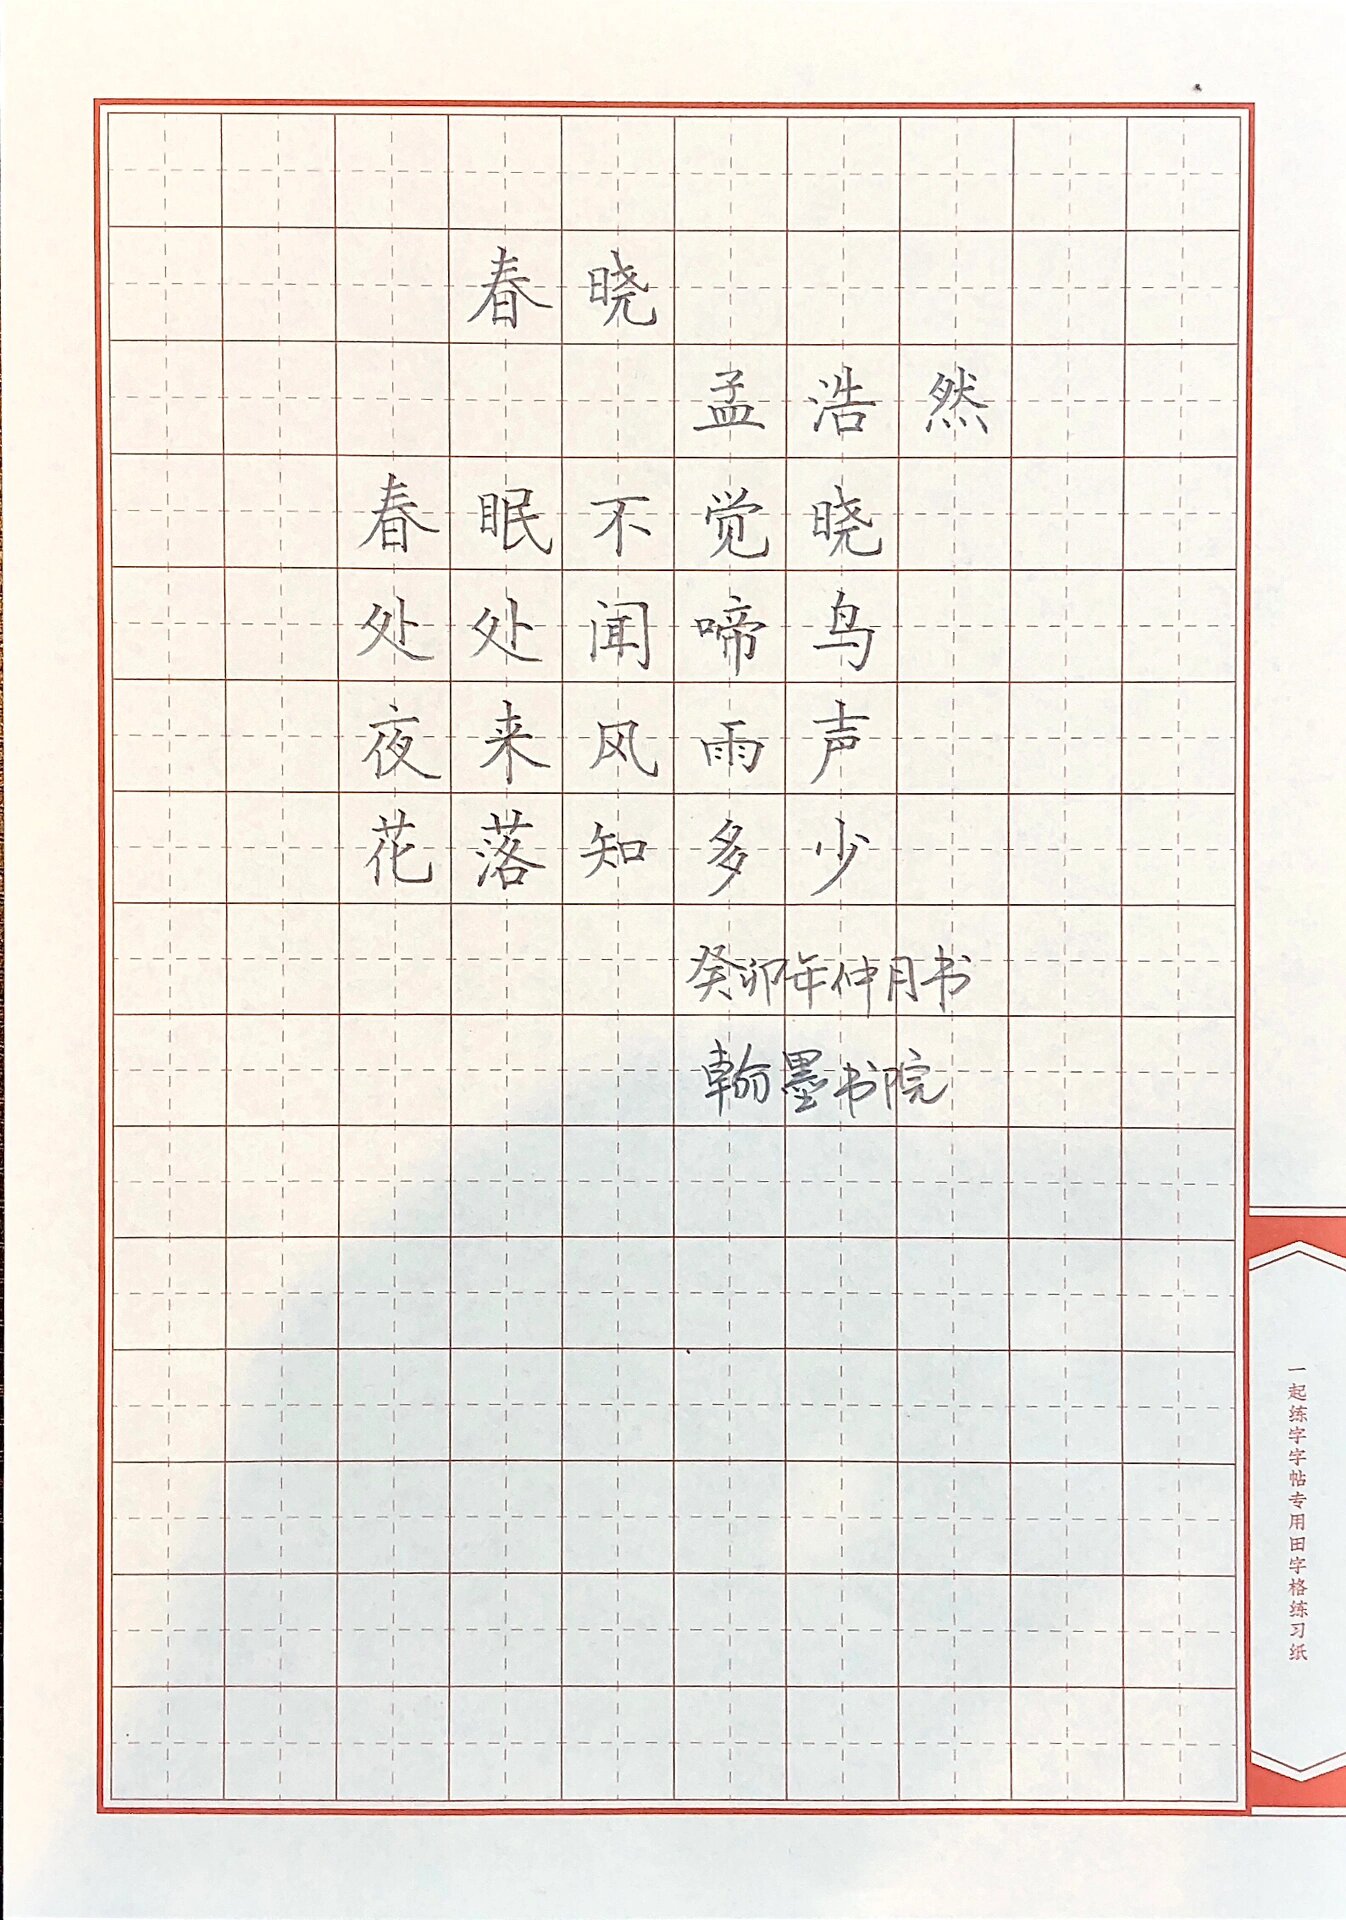 春晓
孟浩然
春眠不觉晓
处处闻啼鸟
夜来风雨声
花落知多少
癸卯年仲月书
翰墨书院
一起练字字帖专用田字格练习纸